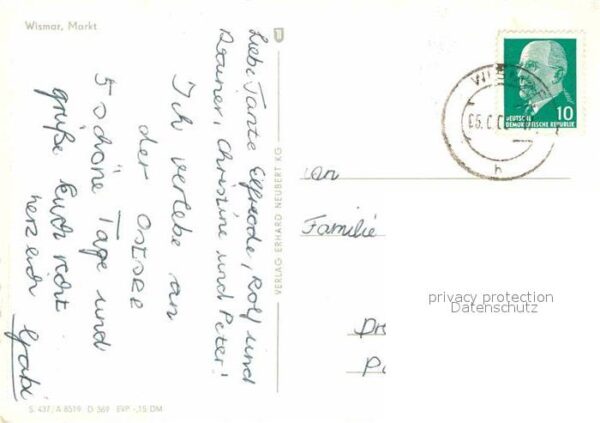 Wismar, Markt
Liebe Tante Elfriede, Rolf und
Rainer, Christine und Peter!
Ich verlebe an
der OSTSEE
5 schöne Tage und
grüße Euch recht
herzlich
Gabi
VERLAG ERHARD NEUBERT KG
S. 437/A 8519 D 369 EVP -,15 DM
DEUTSCHE
DEMOKRATISCHE REPUBLIK
10
h
an
Familie
privacy protection
Datenschutz